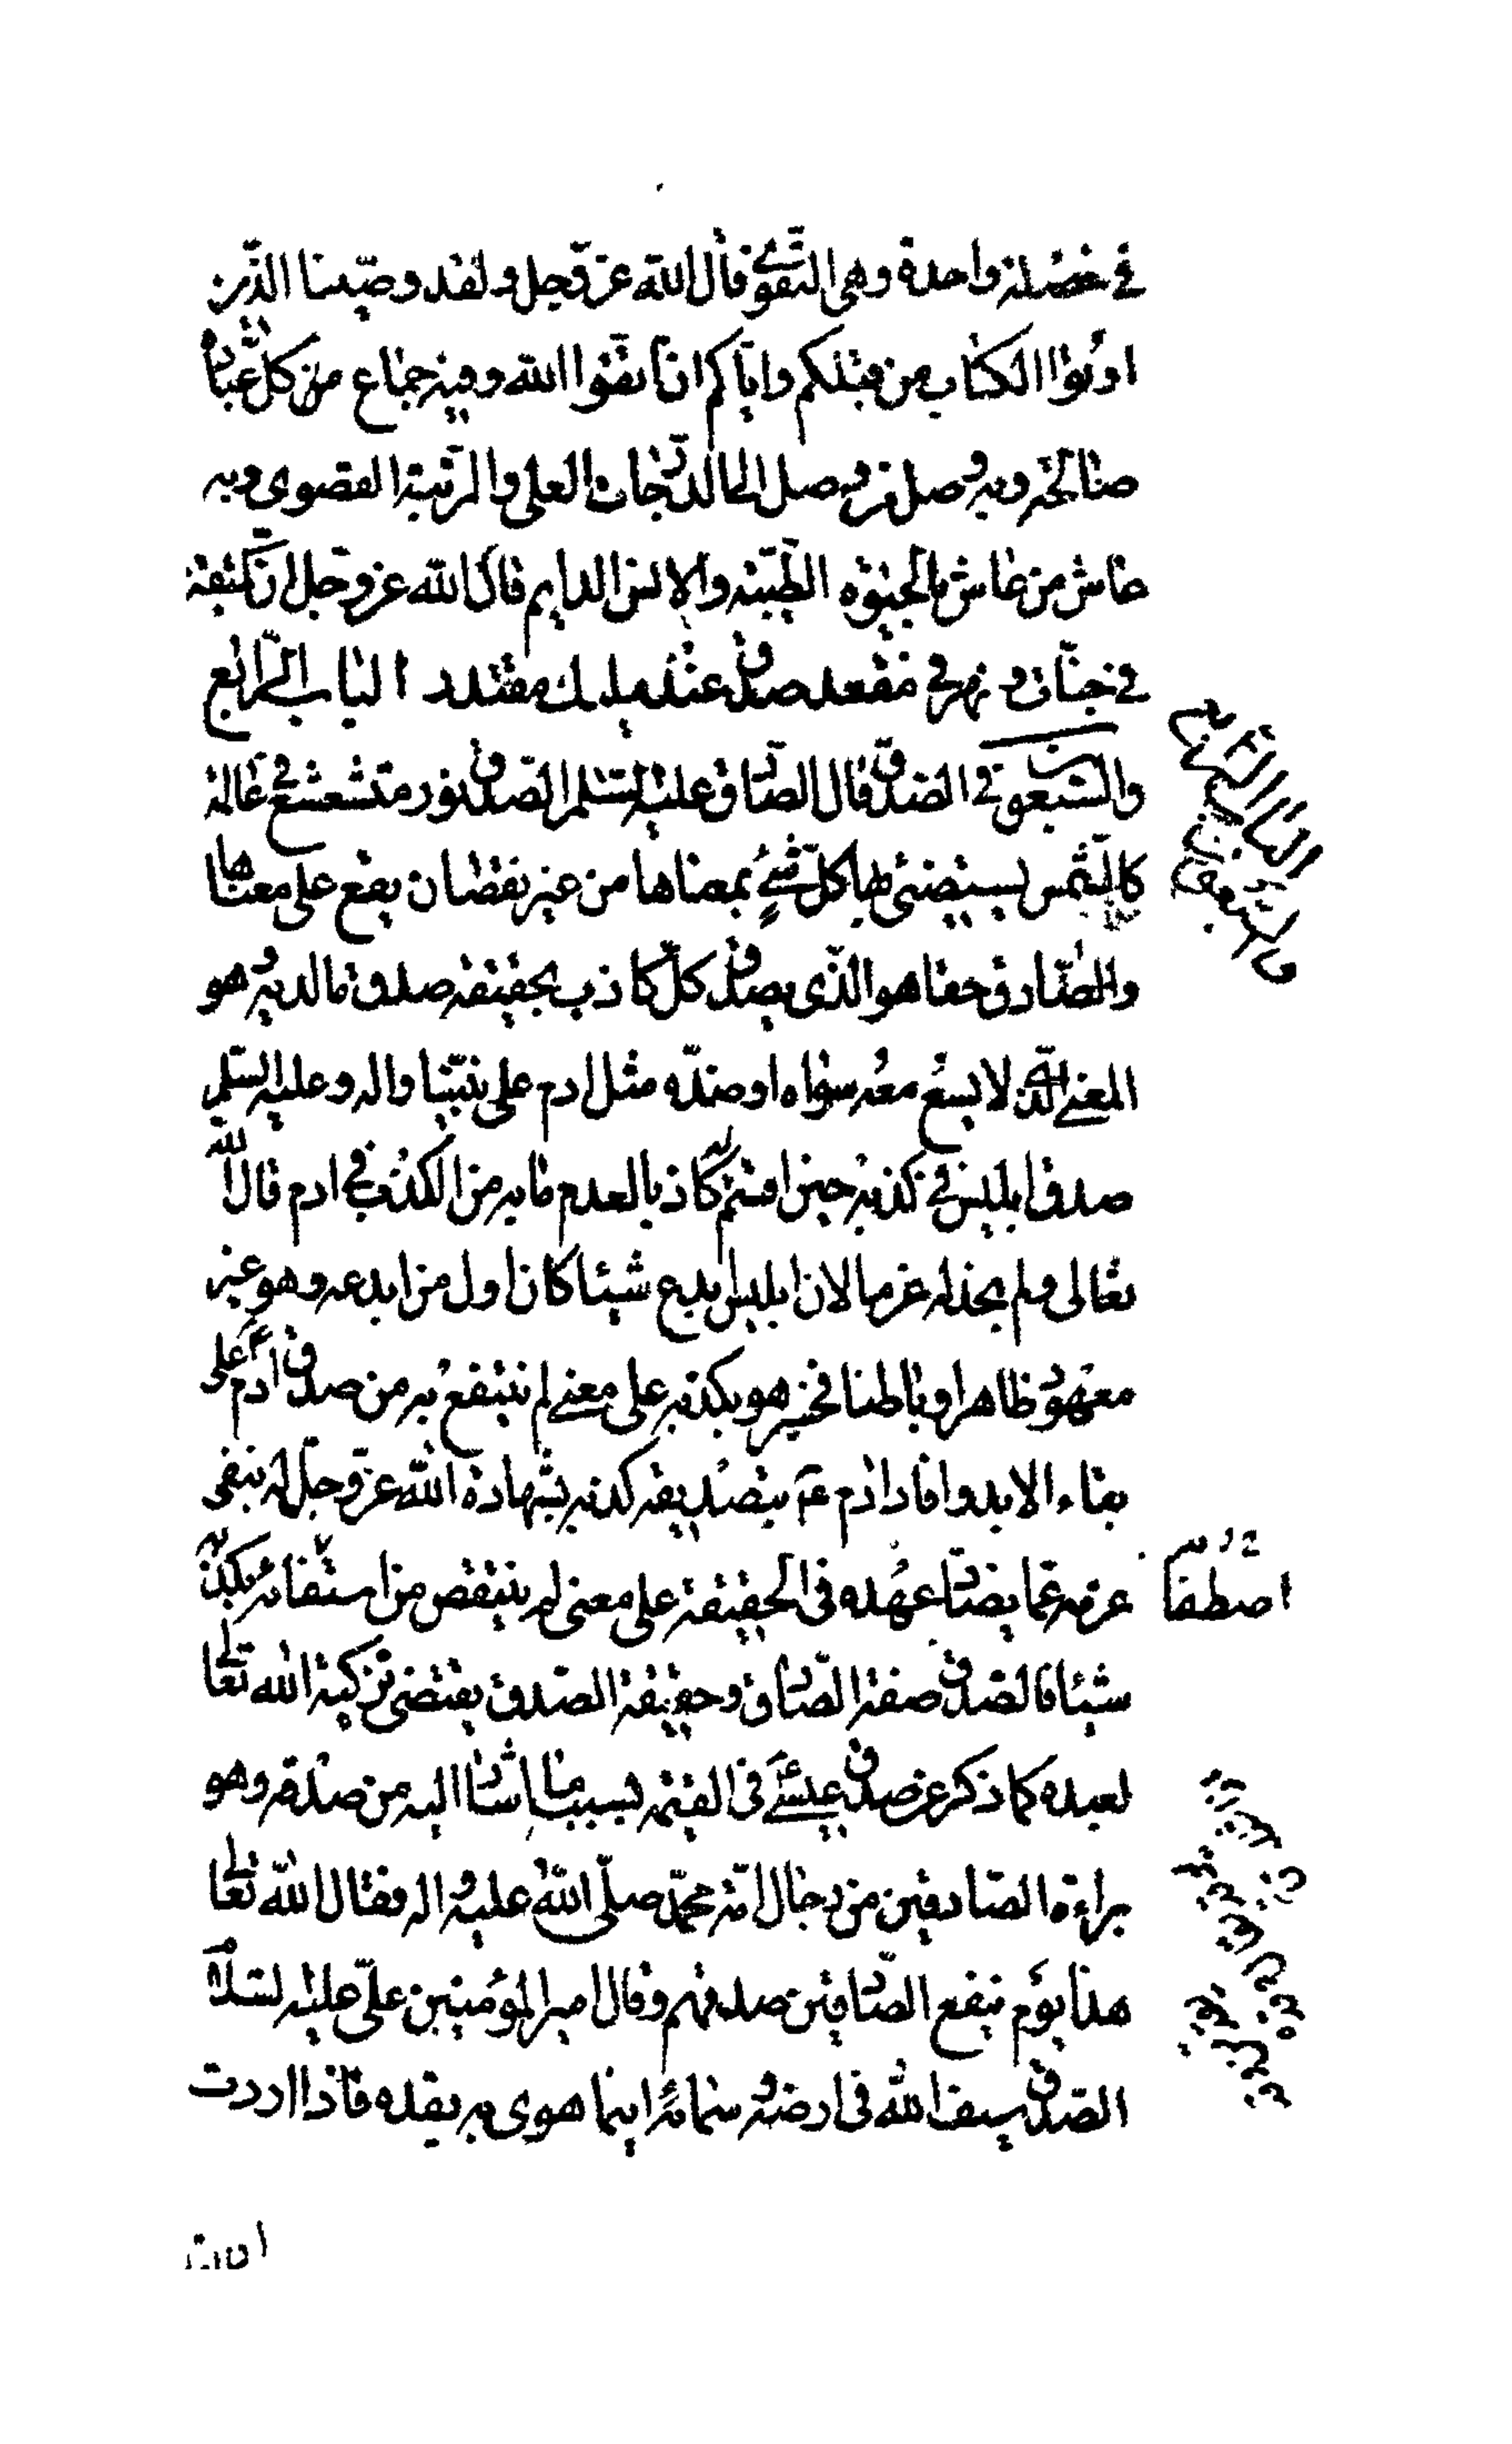 في خصلة واحدة وهي التقوى قال الله عز وجل ولقد وصينا الذين
اوتوا الكتاب من قبلكم واياكم ان اتقوا الله وفيه جماع من كل عبادة
صالحة وبه وصل من وصل الى الدرجات العلى والرتبة القصوى وبه
عاش من عاش بالحيوة الطيبة والانس الدايم قال الله عز وجل ان المتقين
في جنات ونهر في مقعد صدق عند مليك مقتدر الباب الرابع
والسبعون في الصدق قال الصادق عليه السلم الصدق نور متشعشع في عالمه
كالشمس يستضئ بها كل شئ بمعناها من غير نقصان يقع على معناها
والصادق حقا هو الذي يصدق كل كاذب بحقيقة صدق مالديه وهو
المعنى الذي لا يسع معه سواه او ضده مثل ادم على نبينا واله وعليه السلم
صدق ابليس في كذبه حين اقسم له كاذبا لعدم مابه من الكذب في ادم قال الله
تعالى ولم نجد له عزما لان ابليس ابدع شيئا كان اول من ابدعه وهو غير
معهود ظاهرا وباطنا فخسر هو بكذبه على معنى لم ينتفع به من صدق ادم ع على
بقاء الابد وافاد ادم ع م بتصديقه كذبه بشهادة الله عز وجل له بنفي
عزمه عما يضاد عهده في الحقيقة على معنى لم ينتقص من اصطفائه بكذبه
اصطفا
شيئا فالصدق صفة الصادق وحقيقة الصدق يقتضي تزكية الله تعالى
لعبده كما ذكر عن صدق عيسى ع في القيمة بسبب ما اشار اليه من صدقه وهو
براءة الصادقين من رجال امة محمد صلى الله عليه واله فقال الله تعالى
هذا يوم ينفع الصادقين صدقهم وقال امير المؤمنين علي عليه السلام
الصدق سيف الله في ارضه وسمائه اينما هوى به يقده فاذا اردت
الباب الرابع
والسبعون